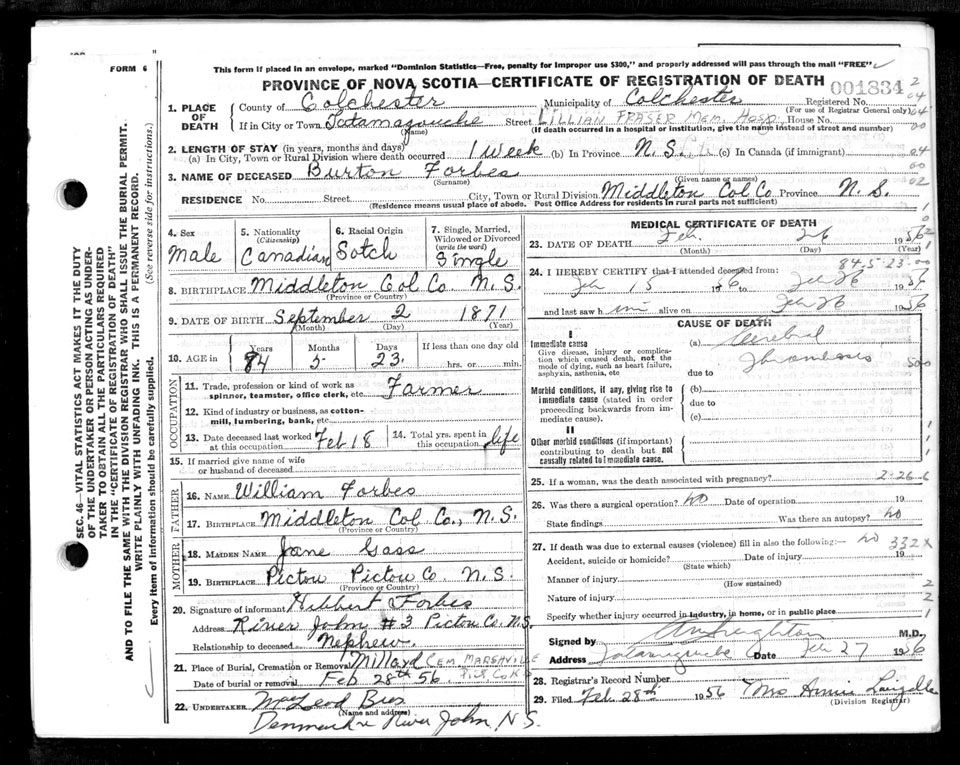 FORM 6
This form if placed in an envelope, marked "Dominion Statistics—Free, penalty for improper use $300," and properly addressed will pass through the mail "FREE"
PROVINCE OF NOVA SCOTIA—CERTIFICATE OF REGISTRATION OF DEATH
001834
Registered No.
(For use of Registrar General only)
1. PLACE OF DEATH
County of Colchester Municipality of Colchester
If in City or Town Tatamagouche Street LILLIAN FRASER MEM. HOSP. House No.
(Name) (If death occurred in a hospital or institution, give the name instead of street and number)
2. LENGTH OF STAY (in years, months and days)
(a) In City, Town or Rural Division where death occurred 1 Week (b) In Province N.S. (c) In Canada (if immigrant)
3. NAME OF DECEASED Burton Forbes
(Surname) (Given name or names)
RESIDENCE No. Street City, Town or Rural Division Middleton Col Co. Province N. S.
(Residence means usual place of abode. Post Office Address for residents in rural parts not sufficient)
4. Sex Male
5. Nationality (Citizenship) Canadian
6. Racial Origin Sotch
7. Single, Married, Widowed or Divorced (write the word) Single
8. BIRTHPLACE Middleton Col Co. N. S.
(Province or Country)
9. DATE OF BIRTH September 2 1871
(Month) (Day) (Year)
10. AGE in Years Months Days If less than one day old
84 5 23 hrs. or min.
OCCUPATION
11. Trade, profession or kind of work as spinner, teamster, office clerk, etc. Farmer
12. Kind of industry or business, as cotton-mill, lumbering, bank, etc.
13. Date deceased last worked at this occupation Feb 18
14. Total yrs. spent in this occupation life
15. If married give name of wife or husband of deceased
FATHER
16. NAME William Forbes
17. BIRTHPLACE Middleton Col Co., N.S.
(Province or Country)
MOTHER
18. MAIDEN NAME Jane Gass
19. BIRTHPLACE Pictou Pictou Co. N.S.
(Province or Country)
20. Signature of informant Hibbert Forbes
Address River John #3 Pictou Co. N.S.
Relationship to deceased Nephew
21. Place of Burial, Cremation or Removal Millard CEM. MARSHVILLE
Date of burial or removal Feb 28th 56 Pict Co
22. UNDERTAKER MacLeod Bros
(Name and address)
Denmark River John N.S.
MEDICAL CERTIFICATE OF DEATH
23. DATE OF DEATH Feb. 26 1956
(Month) (Day) (Year)
84-5-23-00
24. I HEREBY CERTIFY that I attended deceased from:
Feb 15 1956 to Feb 26 1956
and last saw him alive on Feb 26 1956
CAUSE OF DEATH
I
Immediate cause
Give disease, injury or complication which caused death, not the mode of dying, such as heart failure, asphyxia, asthenia, etc
(a) Cerebral
Thrombosis
due to
Morbid conditions, if any, giving rise to immediate cause (stated in order proceeding backwards from immediate cause).
(b)
due to
(c)
II
Other morbid conditions (if important) contributing to death but not causally related to immediate cause.
25. If a woman, was the death associated with pregnancy?
2-26-6
26. Was there a surgical operation? no Date of operation 19
State findings Was there an autopsy? no
27. If death was due to external causes (violence) fill in also the following:— no 332x
Accident, suicide or homicide? Date of injury 19
(State which)
Manner of injury
(How sustained)
Nature of injury
Specify whether injury occurred in industry, in home, or in public place
Signed by M.D.
Address Tatamagouche Date Feb 27 1956
28. Registrar's Record Number
29. Filed Feb 28th 1956 Mrs Annie
(Division Registrar)
SEC. 46—VITAL STATISTICS ACT MAKES IT THE DUTY
OF THE UNDERTAKER OR PERSON ACTING AS UNDER-
TAKER TO OBTAIN ALL THE PARTICULARS REQUIRED
IN THE "CERTIFICATE OF REGISTRATION OF DEATH"
AND TO FILE THE SAME WITH THE DIVISION REGISTRAR WHO SHALL ISSUE THE BURIAL PERMIT.
WRITE PLAINLY WITH UNFADING INK. THIS IS A PERMANENT RECORD.
Every item of information should be carefully supplied. (See reverse side for instructions.)